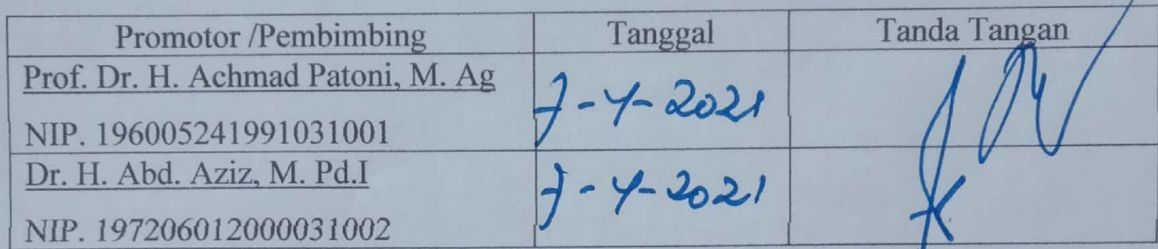 Promotor /Pembimbing Tanggal Tanda Tangan
Prof. Dr. H. Achmad Patoni, M. Ag
NIP. 196005241991031001
7-4-2021
Dr. H. Abd. Aziz, M. Pd.I
NIP. 197206012000031002
7-4-2021